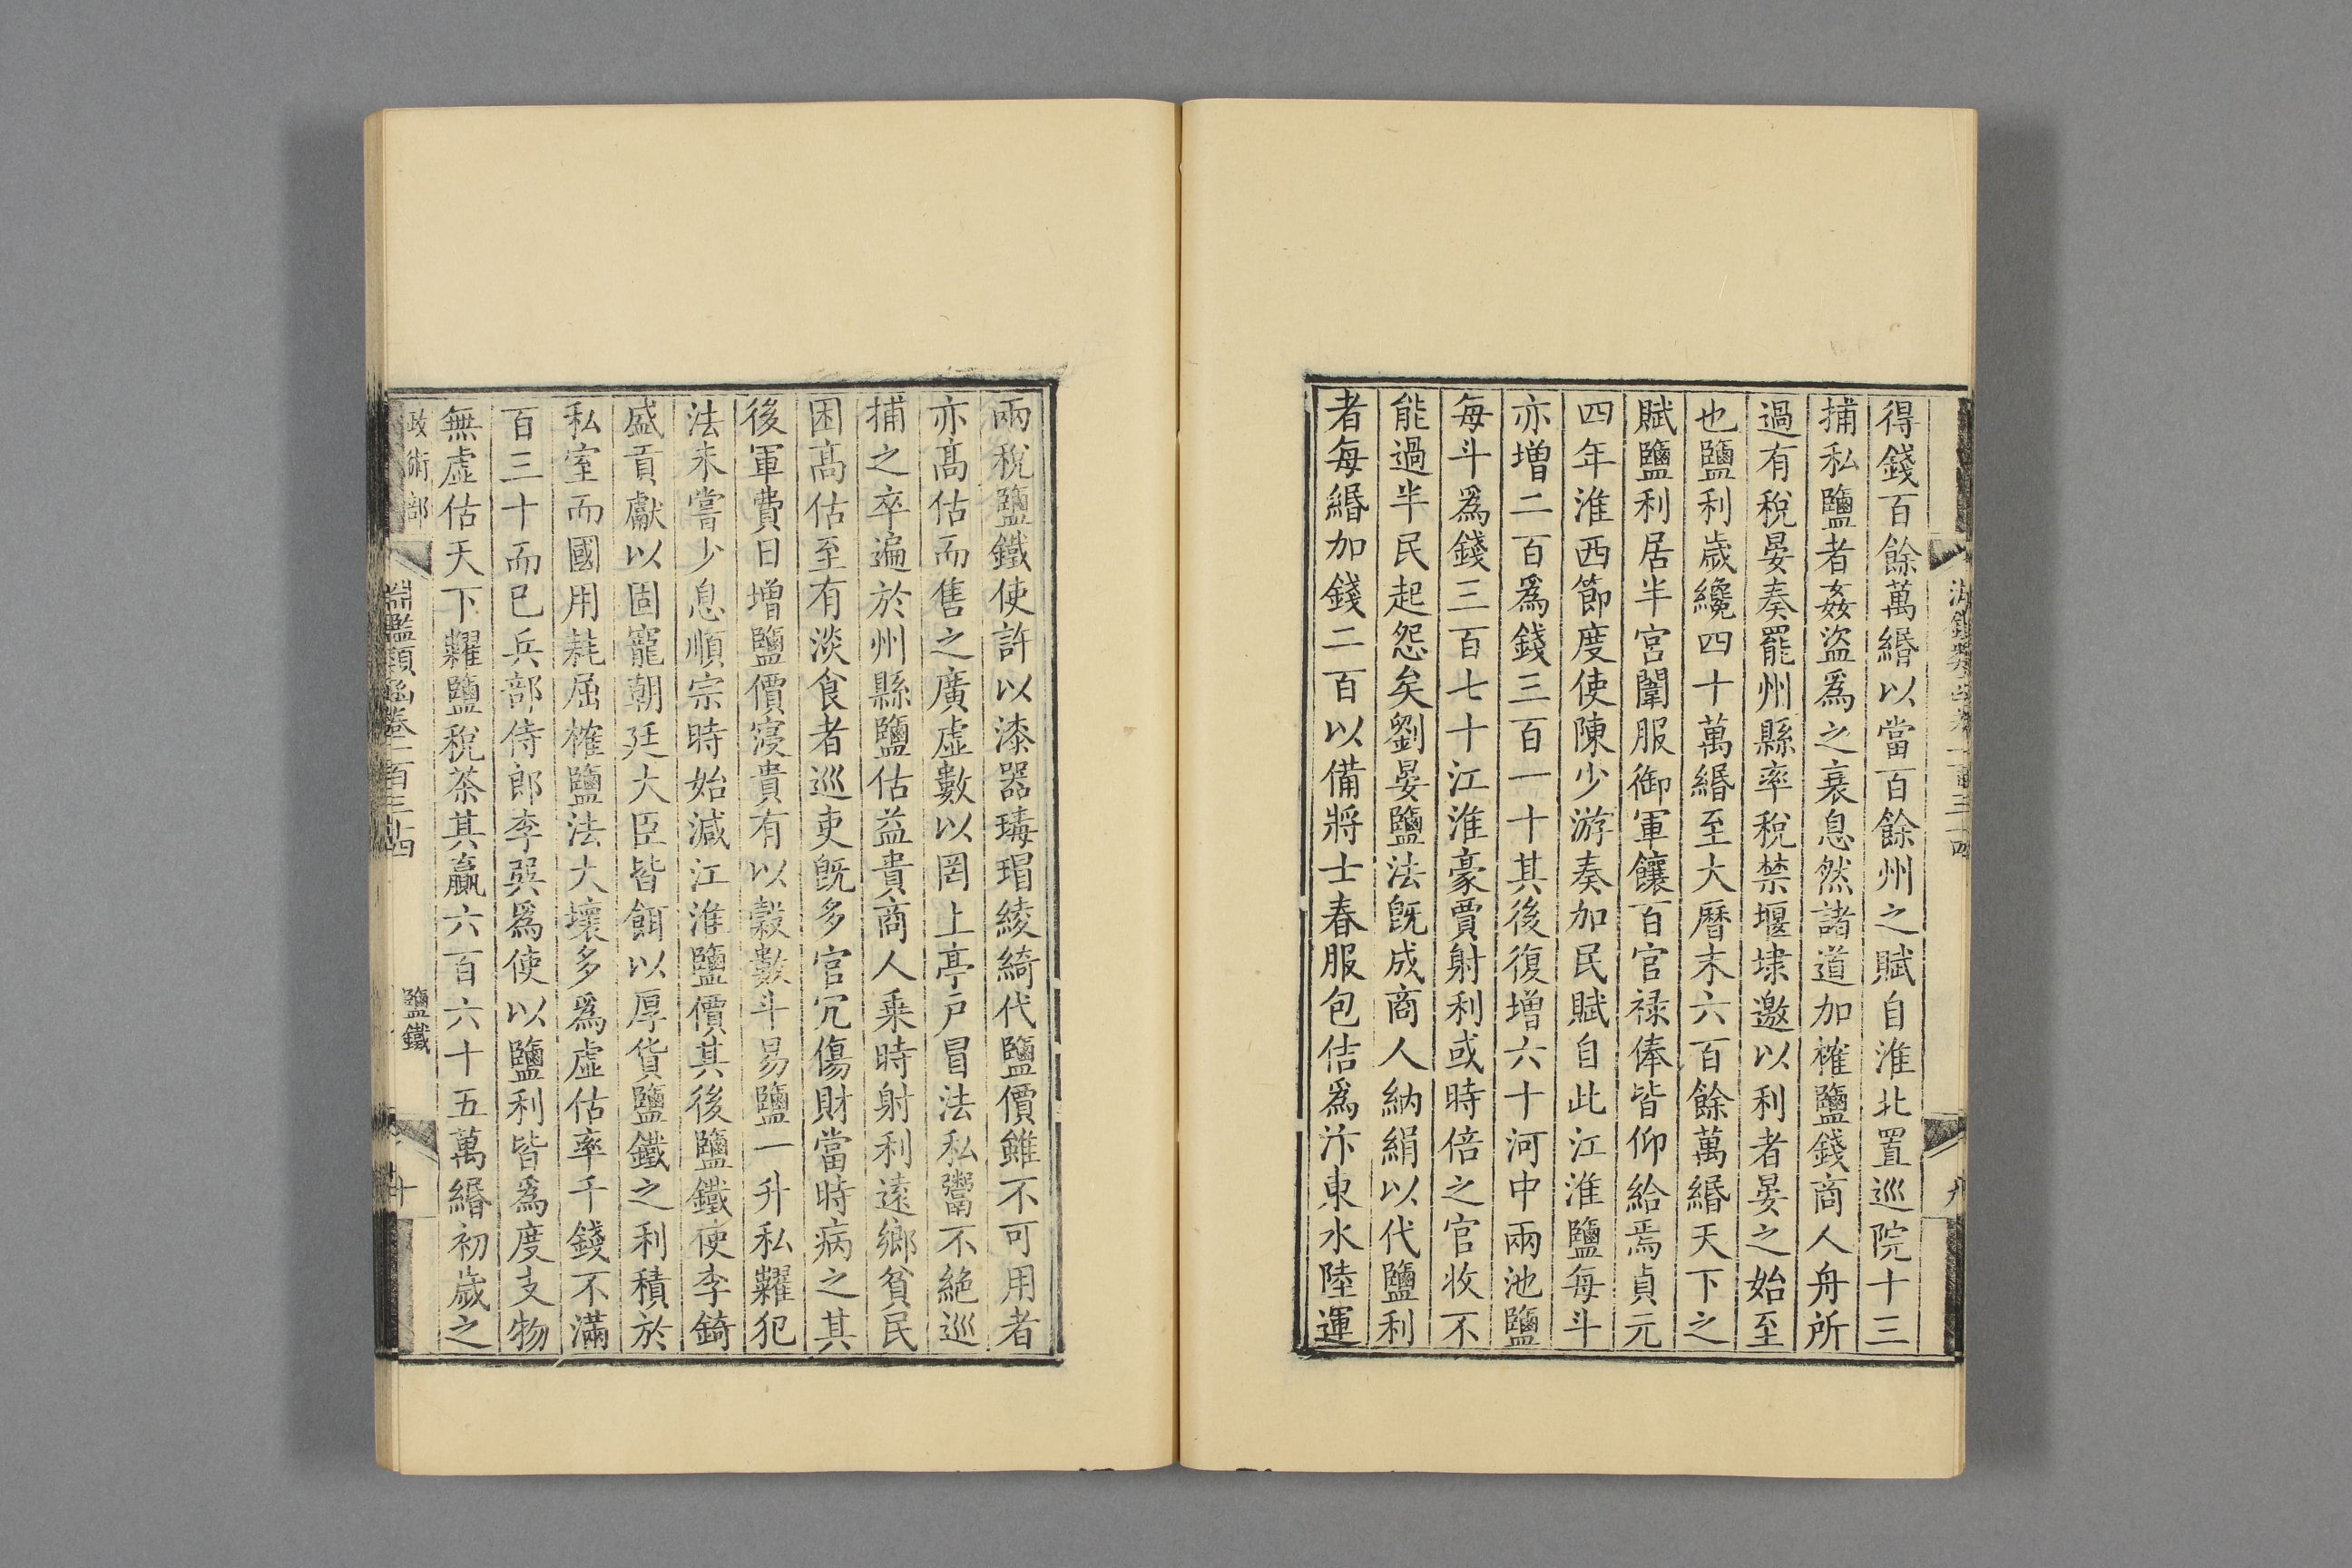 得錢百餘萬緡以當百餘州之賦自淮北置巡院十三
捕私鹽者姦盜爲之衰息然諸道加榷鹽錢商人舟所
過有稅晏奏罷州縣率稅禁堰埭邀以利者晏之始至
也鹽利歲纔四十萬緡至大曆末六百餘萬緡天下之
賦鹽利居半宮闈服御軍饟百官祿俸皆仰給焉貞元
四年淮西節度使陳少游奏加民賦自此江淮鹽每斗
亦增二百爲錢三百一十其後復增六十河中兩池鹽
每斗爲錢三百七十江淮豪賈射利或時倍之官收不
能過半民起怨矣劉晏鹽法旣成商人納絹以代鹽利
者每緡加錢二百以備將士春服包佶爲汴東水陸運
兩稅鹽鐵使許以漆器瑇瑁綾綺代鹽價雖不可用者
亦高估而售之廣虛數以罔上亭戶冒法私鬻不絕巡
捕之卒遍於州縣鹽估益貴商人乗時射利遠鄉貧民
困高估至有淡食者巡吏旣多官冗傷財當時病之其
後軍費日增鹽價寖貴有以穀數斗易鹽一升私糶犯
法未嘗少息順宗時始減江淮鹽價其後鹽鐵使李錡
盛貢獻以固寵朝廷大臣皆餌以厚貨鹽鐵之利積於
私室而國用耗屈榷鹽法大壞多爲虛估率千錢不滿
百三十而已兵部侍郎李巽爲使以鹽利皆爲度支物
無虛估天下糶鹽稅茶其贏六百六十五萬緡初歲之
政術部 淵鑑類函卷一百三十四 鹽鐵 十